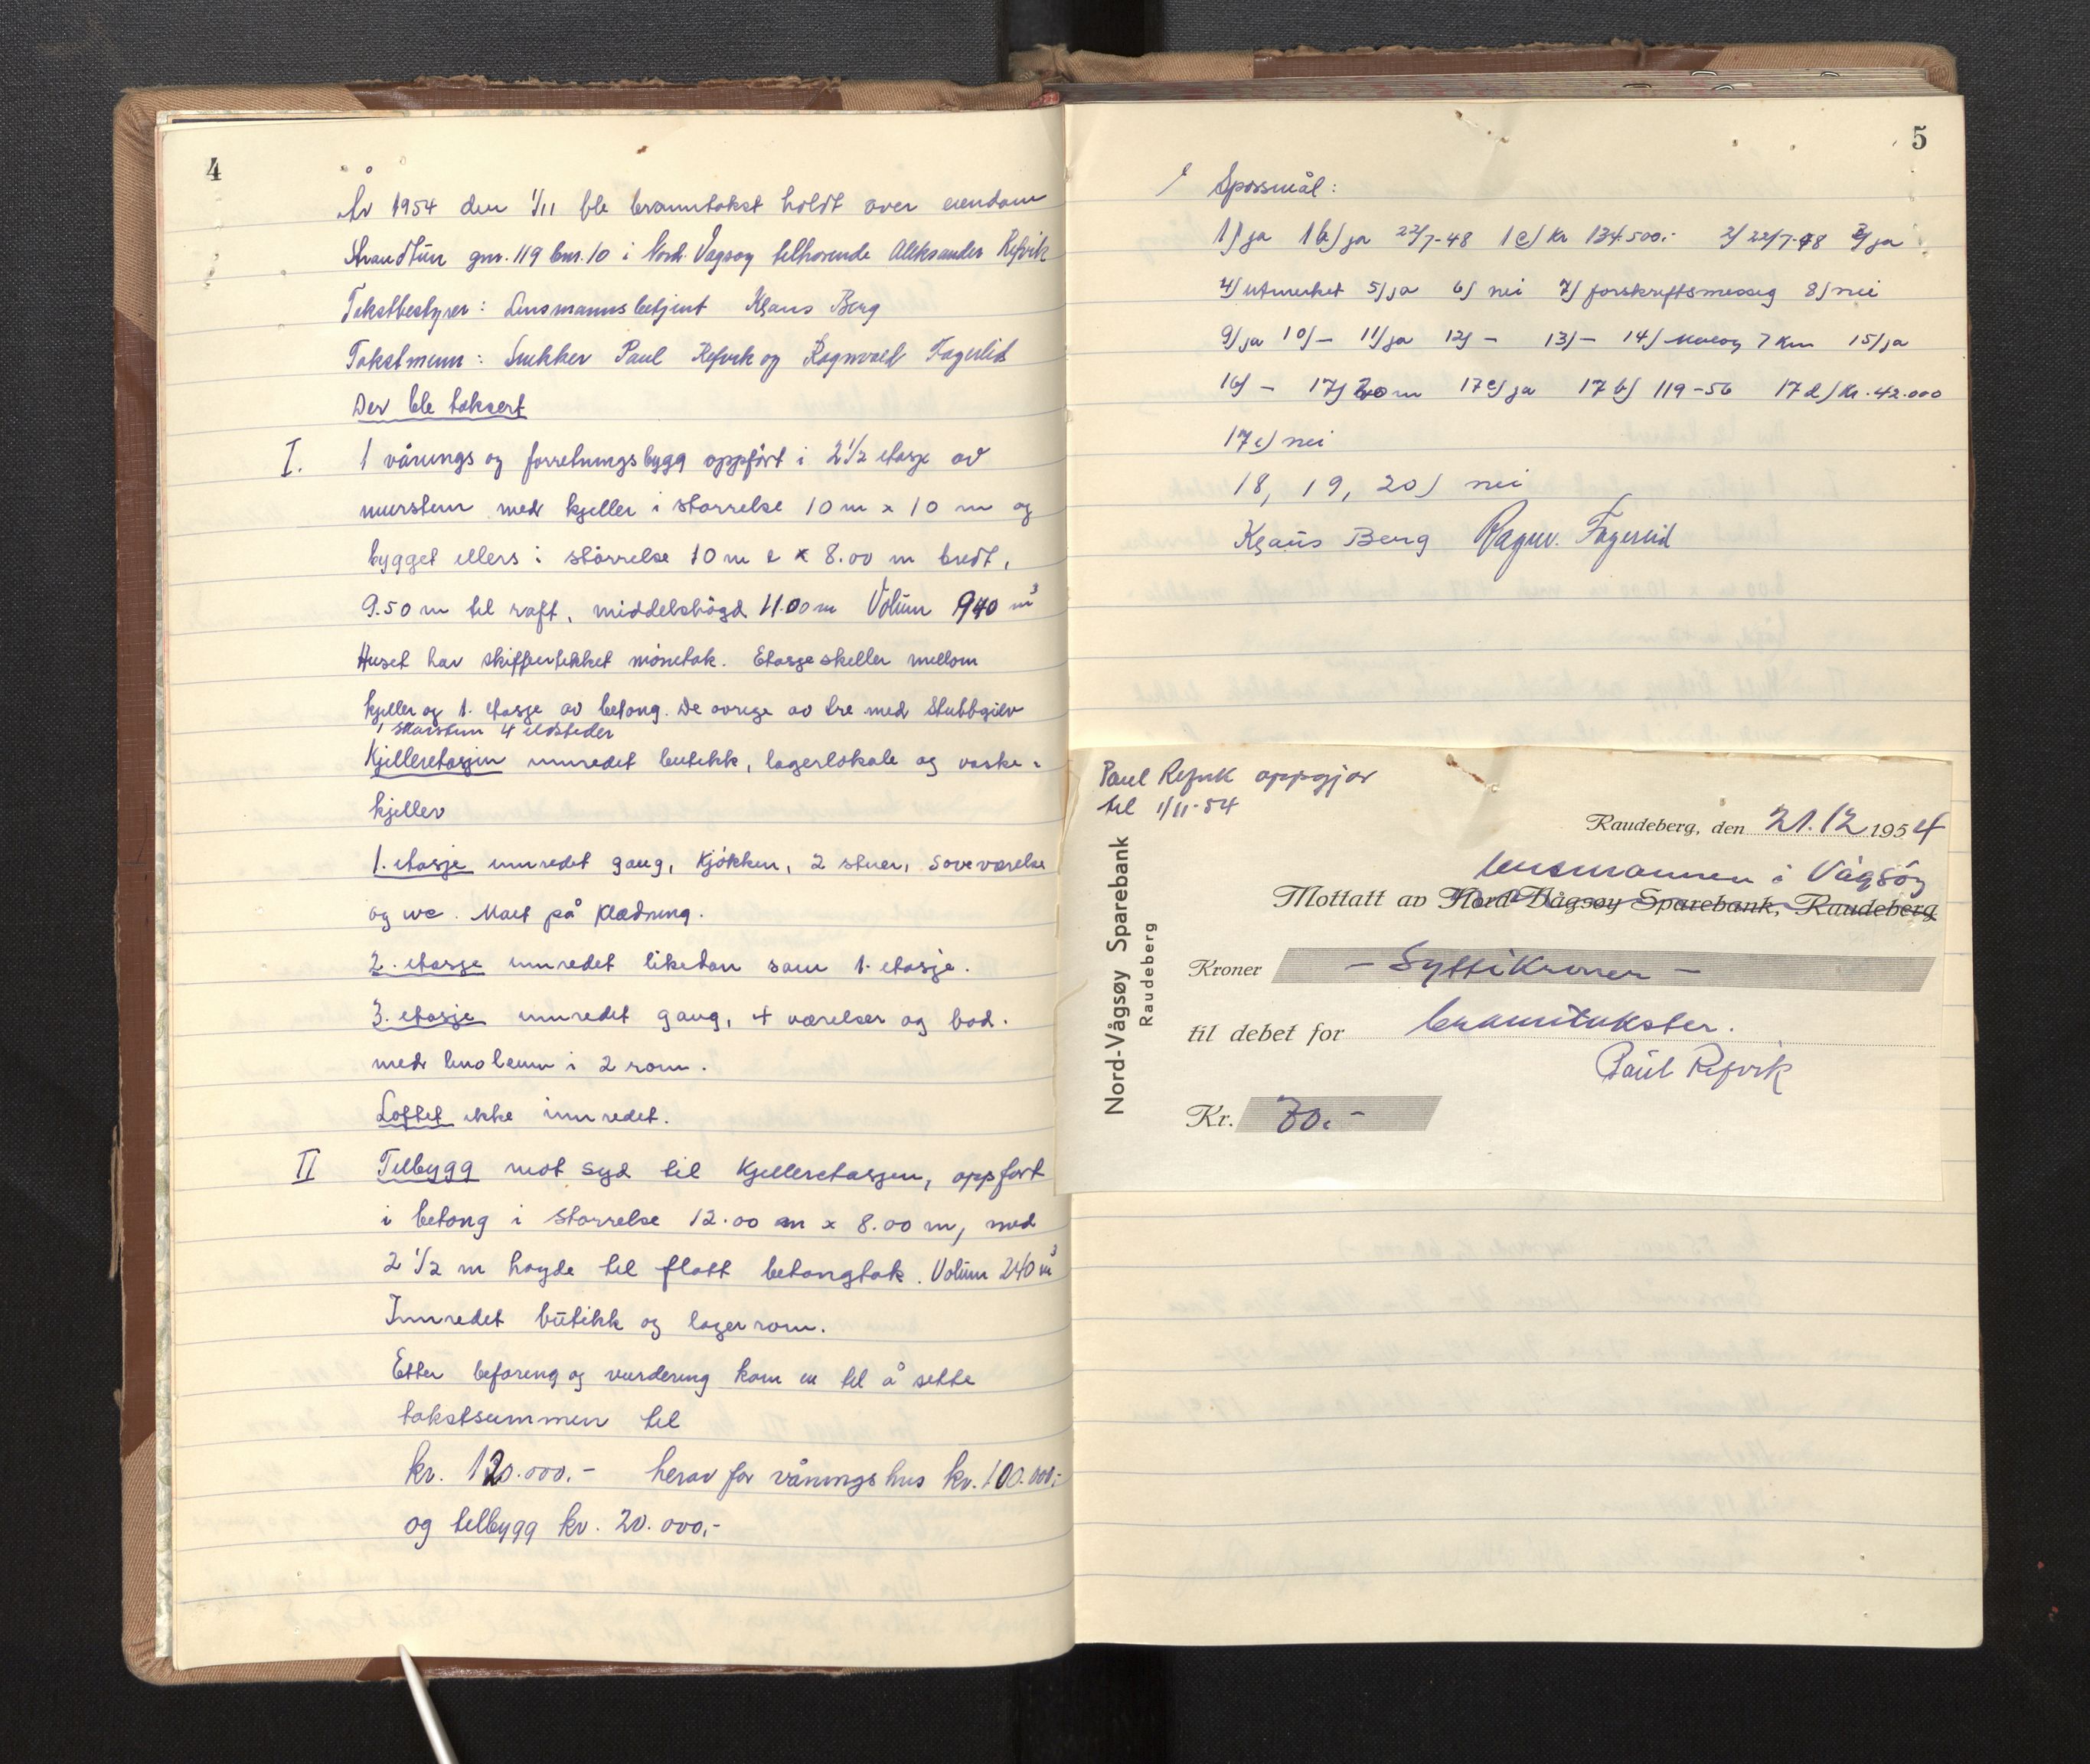 4
År 1954 den 1/11 ble branntakst holdt over eiendom
Strandtun gnr. 119 bnr. 10 i Nord-Vågsøy tilhørende Aleksander Refvik
Takstbestyrer: Lensmannsbetjent Klaus Berg
Takstmenn: Snekker Paul Refvik og Ragnvald Fagerlid
Der ble taksert
I. 1 vånings og forretningsbygg oppført i 2 1/2 etasje av
murstein med kjeller i størrelse 10 m x 10 m og
bygget ellers i størrelse 10 m x 8.00 m bredt,
9.50 m til raft, middelshögd 11.00 m Volum 940 m³
Huset har skiffertekket mønetak. Etasjeskeller mellom
kjeller og 1. etasje av betong. De øvrige av tre med stubbgulv
1 skorstein 4 ildsteder
Kjelleretasjen innredet butikk, lagerlokale og vaske-
kjeller
1. etasje innredet gang, kjøkken, 2 stuer, soveværelse
og wc. Malt på kledning.
2. etasje innredet likedan som 1. etasje.
3. etasje innredet gang, 4 værelser og bod.
med linoleum i 2 rom.
Loftet ikke innredet.
II Tilbygg mot syd til kjelleretasjen, oppført
i betong i størrelse 12.00 m x 8.00 m, med
2 1/2 m høyde til flatt betongtak. Volum 240 m³
Innredet butikk og lagerrom.
Etter befaring og vurdering kom en til å sette
takstsummen til
kr. 120.000.- herav for våningshus kr. 100.000.-
og tilbygg kr. 20.000,-
5
Spørsmål:
1/ ja 1b/ ja 22/7-48 1c/ kr 134.500.- 2/ 22/7-48 3/ ja
4/ utmerket 5/ ja 6/ nei 7/ forskriftsmessig 8/ nei
9/ ja 10/ - 11/ ja 12/ - 13/ - 14/ Måløy 7 km 15/ ja
16/ - 17/ 20 m 17c/ ja 17 b/ 119-56 17 d/ kr. 42.000
17 e/ nei
18, 19, 20/ nei
Klaus Berg Ragnv. Fagerlid
Paul Refvik oppgjør
til 1/11-54
Nord-Vågsøy Sparebank
Raudeberg
Raudeberg, den 21.12 1954
lensmannen i Vågsöy
Mottatt av Nord-Vågsøy Sparebank, Raudeberg
Kroner - Syttikroner -
til debet for branntakster.
Paul Refvik
Kr. 70.-